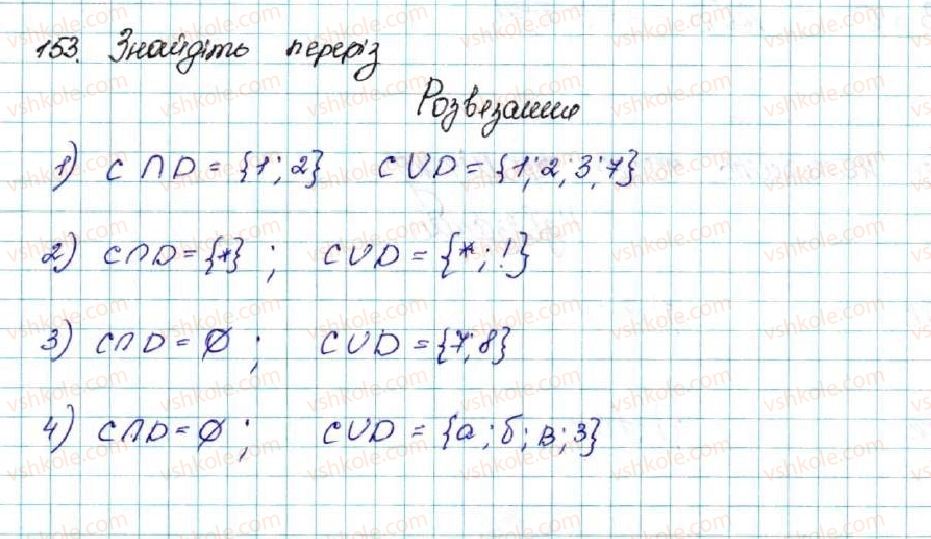 153. Знайдіть переріз
Розвязання
1) C∩D = {1; 2} C∪D = {1; 2; 3; 7}
2) C∩D = {*}; C∪D = {*; !}
3) C∩D = ∅; C∪D = {7; 8}
4) C∩D = ∅; C∪D = {а; б; в; 3}